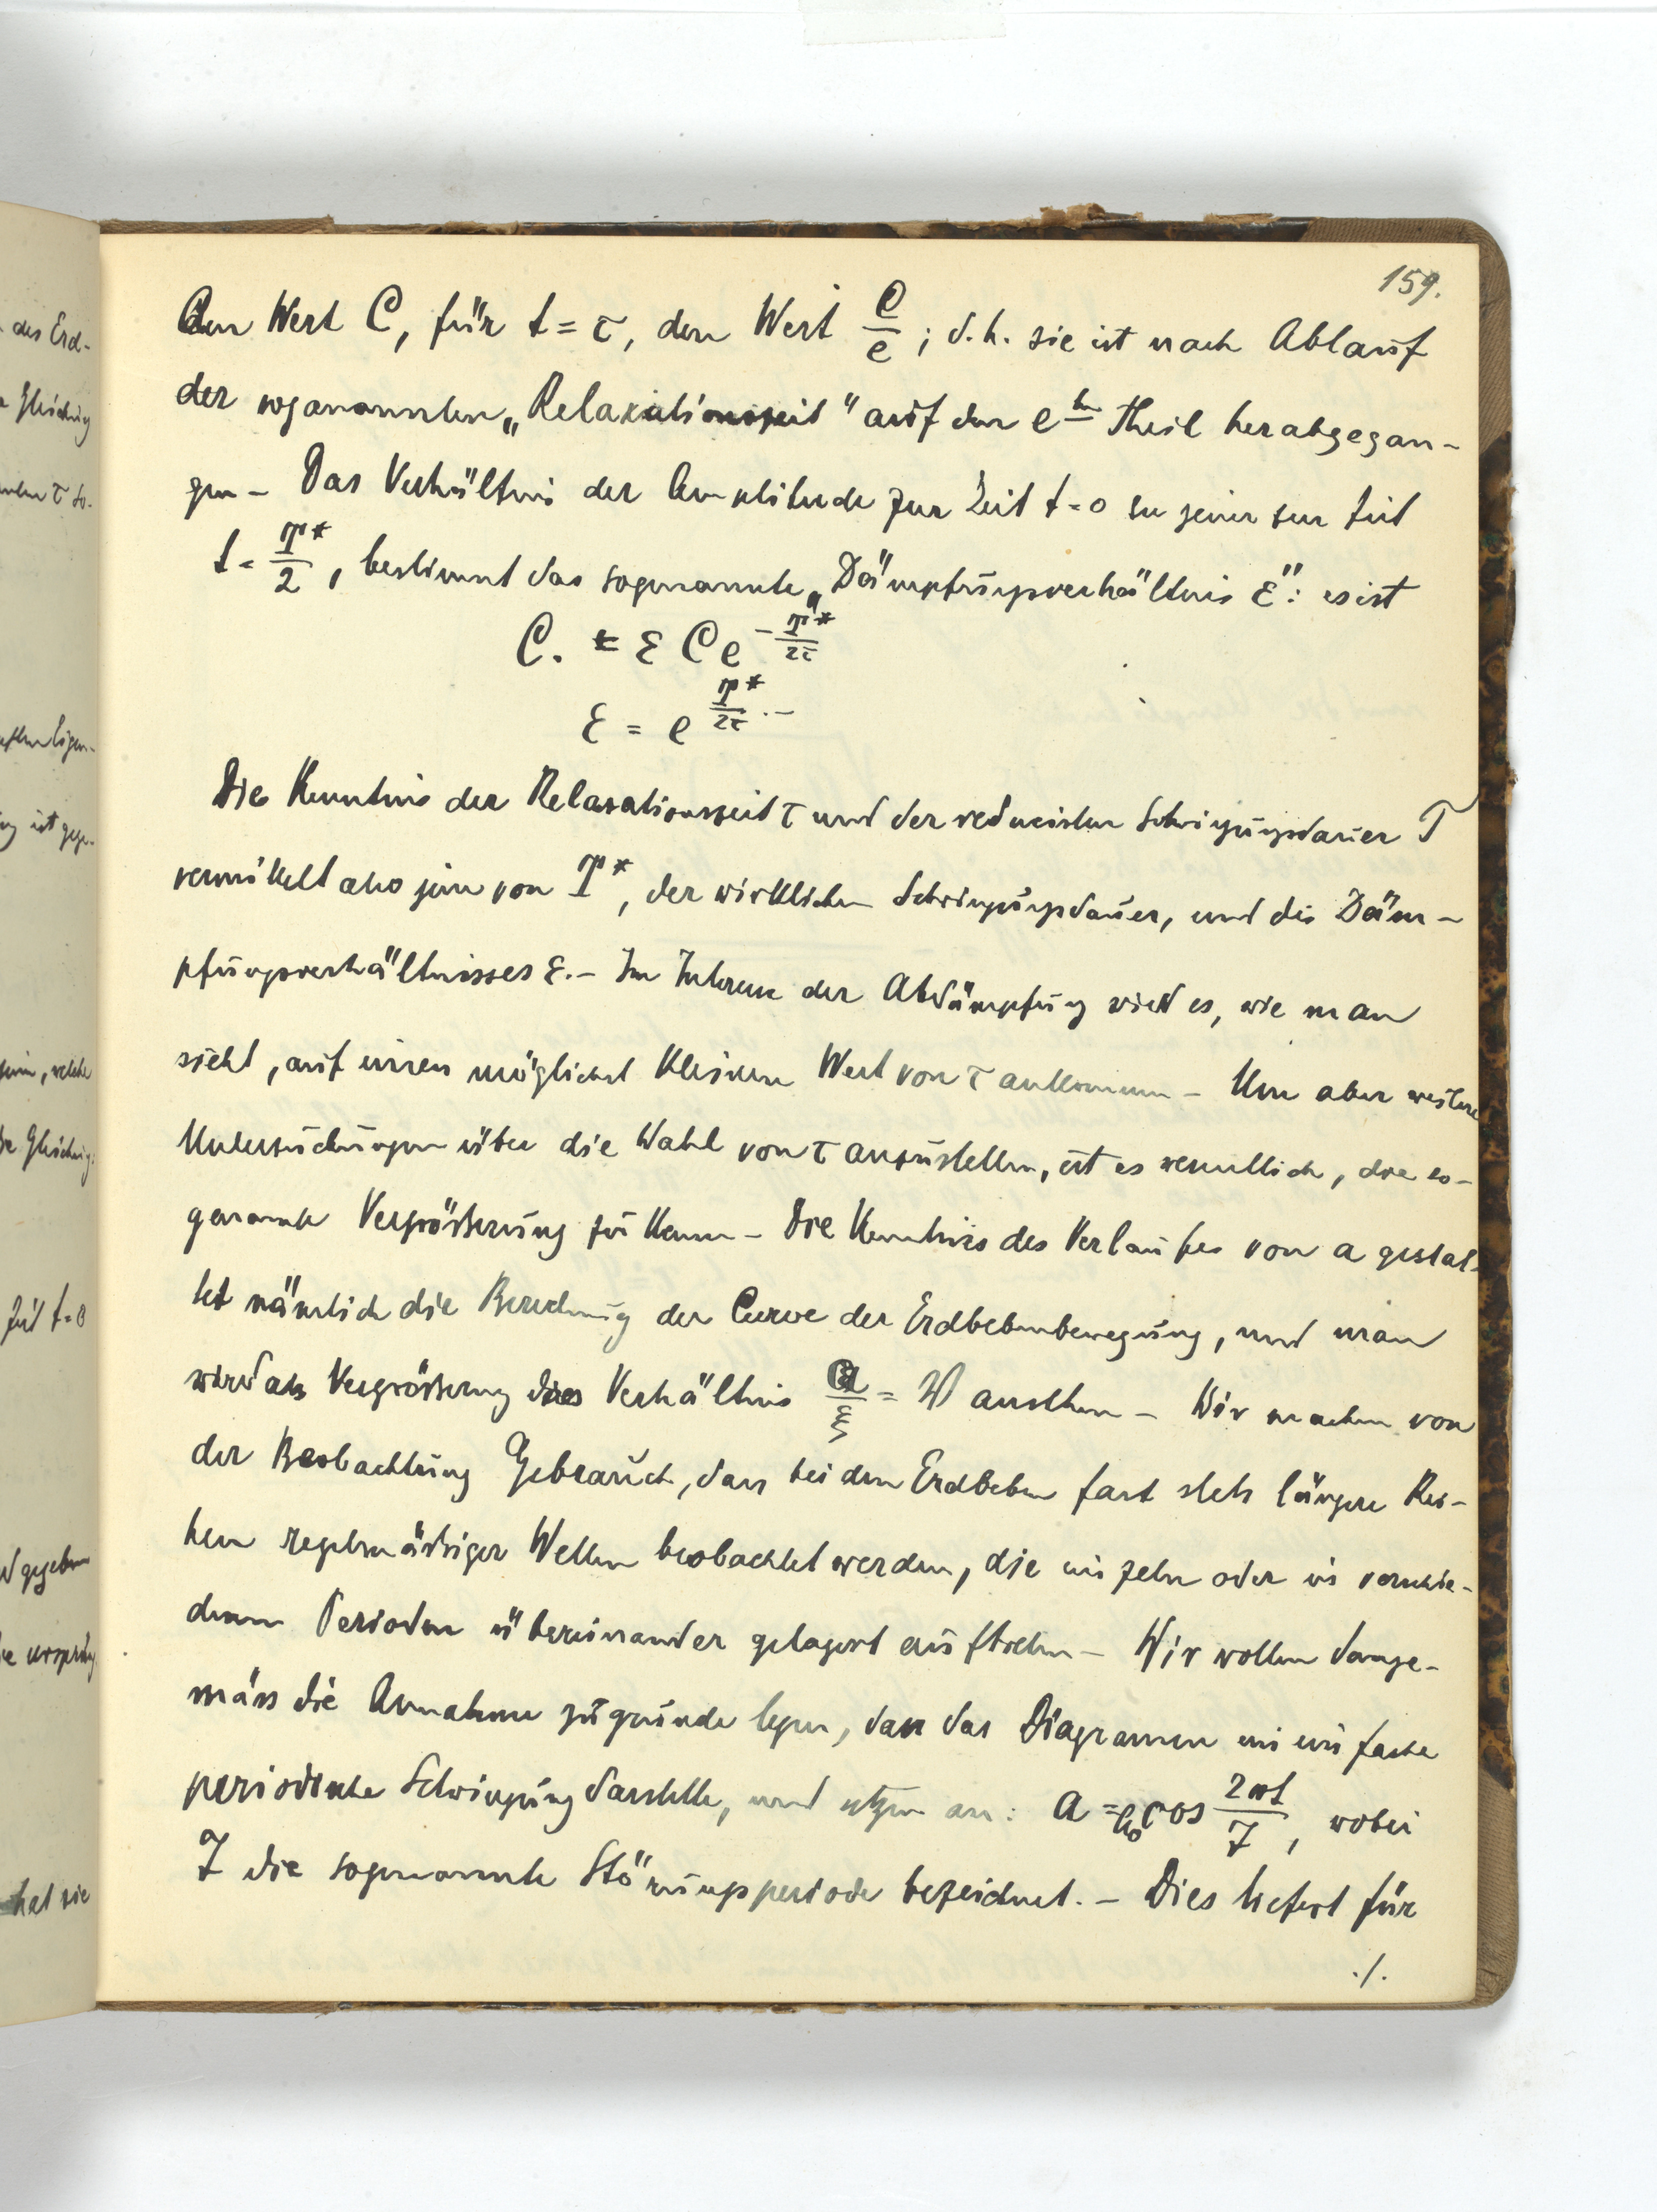 159.
den Wert C, für t = τ, den Wert C/e ; d.h. sie ist nach Ablauf
der sogenannten „Relaxationszeit" auf den e ten Theil herabgegan-
gen – Das Verhältnis der Amplitude zur Zeit t = 0 zu jener zur Zeit
t = T*/2, bestimmt das sogenannte „Dämpfungsverhältnis ε": es ist
C. = ε C e^(-T*/2τ)
ε = e^(T*/2τ) . –
Die Kenntnis der Relaxationszeit τ und der reducirten Schwingungsdauer T
vermittelt also jene von T*, der wirklichen Schwingungsdauer, und des Däm-
pfungsverhältnisses ε. – Im Interesse der Abdämpfung wird es, wie man
sieht, auf einen möglichst kleinen Wert von τ ankommen – Um aber weitere
Untersuchungen über die Wahl von τ anzustellen, ist es wesentlich, die so-
genannte Vergrößerung zu kennen – Die Kenntnis des Verlaufes von a gestat-
tet nämlich die Berechnung der Curve der Erdbebenbewegung, und man
wird als Vergrößerung das Verhältnis a/ξ = W ansehen – Wir machen von
der Beobachtung Gebrauch, dass bei den Erdbeben fast stets längere Rei-
hen regelmäßiger Wellen beobachtet werden, die einzeln oder in verschie-
denen Perioden übereinander gelagert auftreten – Wir wollen demge-
mäss die Annahme zugrunde legen, dass das Diagramm eine einfache
periodische Schwingung darstelle, und setzen an: a = a₀ cos 2πt/T, wobei
T die sogenannte Störungsperiode bezeichnet. – Dies liefert für
./.
des Erd-
Gleichung
τ so-
Eigen-
ist gege-
, welche
Gleichung
Zeit t = 0
gegeben
hat sie